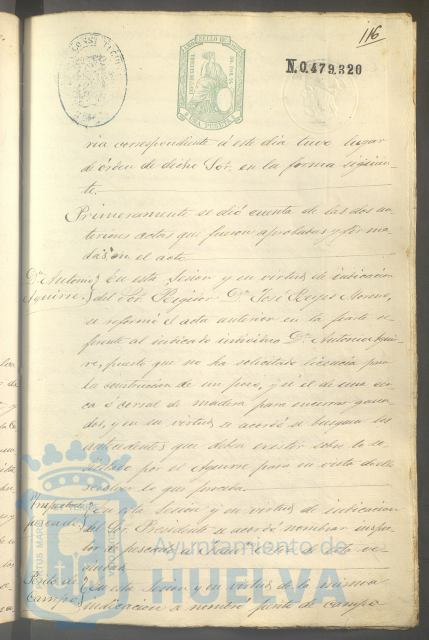 116
N.0.479,320
ria correspondiente á este dia tuvo lugar
de órden de dicho Sor. en la forma siguien-
te.
Primeramente se dió cuenta de las dos an-
teriores actas que fueron aprobadas y firma-
das en el acto.
Dn. Antonio Aguirre.
En esta Sesion y en virtud de indicacion
del Sor. Regidor Dn. José Reyes
se reformó el acta anterior en la parte re-
ferente al indicado individuo Dn. Antonio Aguir-
re puesto que no ha solicitado licencia para
la construccion de un pozo, y si el de una cer-
ca ó corral de madera para encerrar gana-
dos, y en su virtud se acordó se busquen los
antecedentes que deben existir sobre lo so-
licitado por el Aguirre para en vista de ellos
resolver lo que proceda.
Inspector pescado
En esta Sesion y en virtud de indicacion
del Sr. Presidente se acordó nombrar inspec-
tor de pescado á de esta ve-
cindad.
Perito de Campo
En esta Sesion y en virtud de la misma
indicacion se nombró perito de campo
Ayuntamiento de
HUELVA